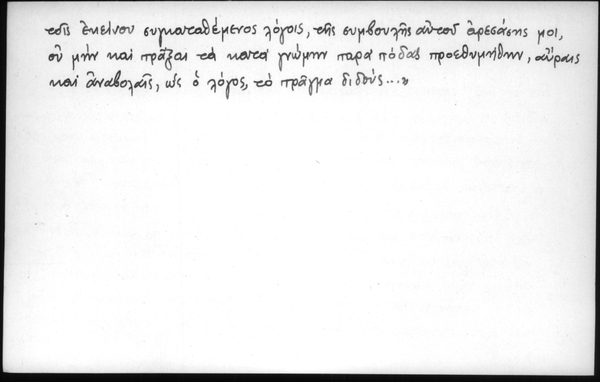 τοῖς ἐκείνου συγκαταθέμενος λόγοις, τῆς συμβουλῆς αὐτοῦ ἀρεσάσης μοι,
οὐ μὴν καὶ πρᾶξαι τὰ κατὰ γνώμην παρὰ πόδας προεθυμήθην, αὔραις
καὶ ἀναβολαῖς, ὡς ὁ λόγος, τὸ πρᾶγμα διδούς...»